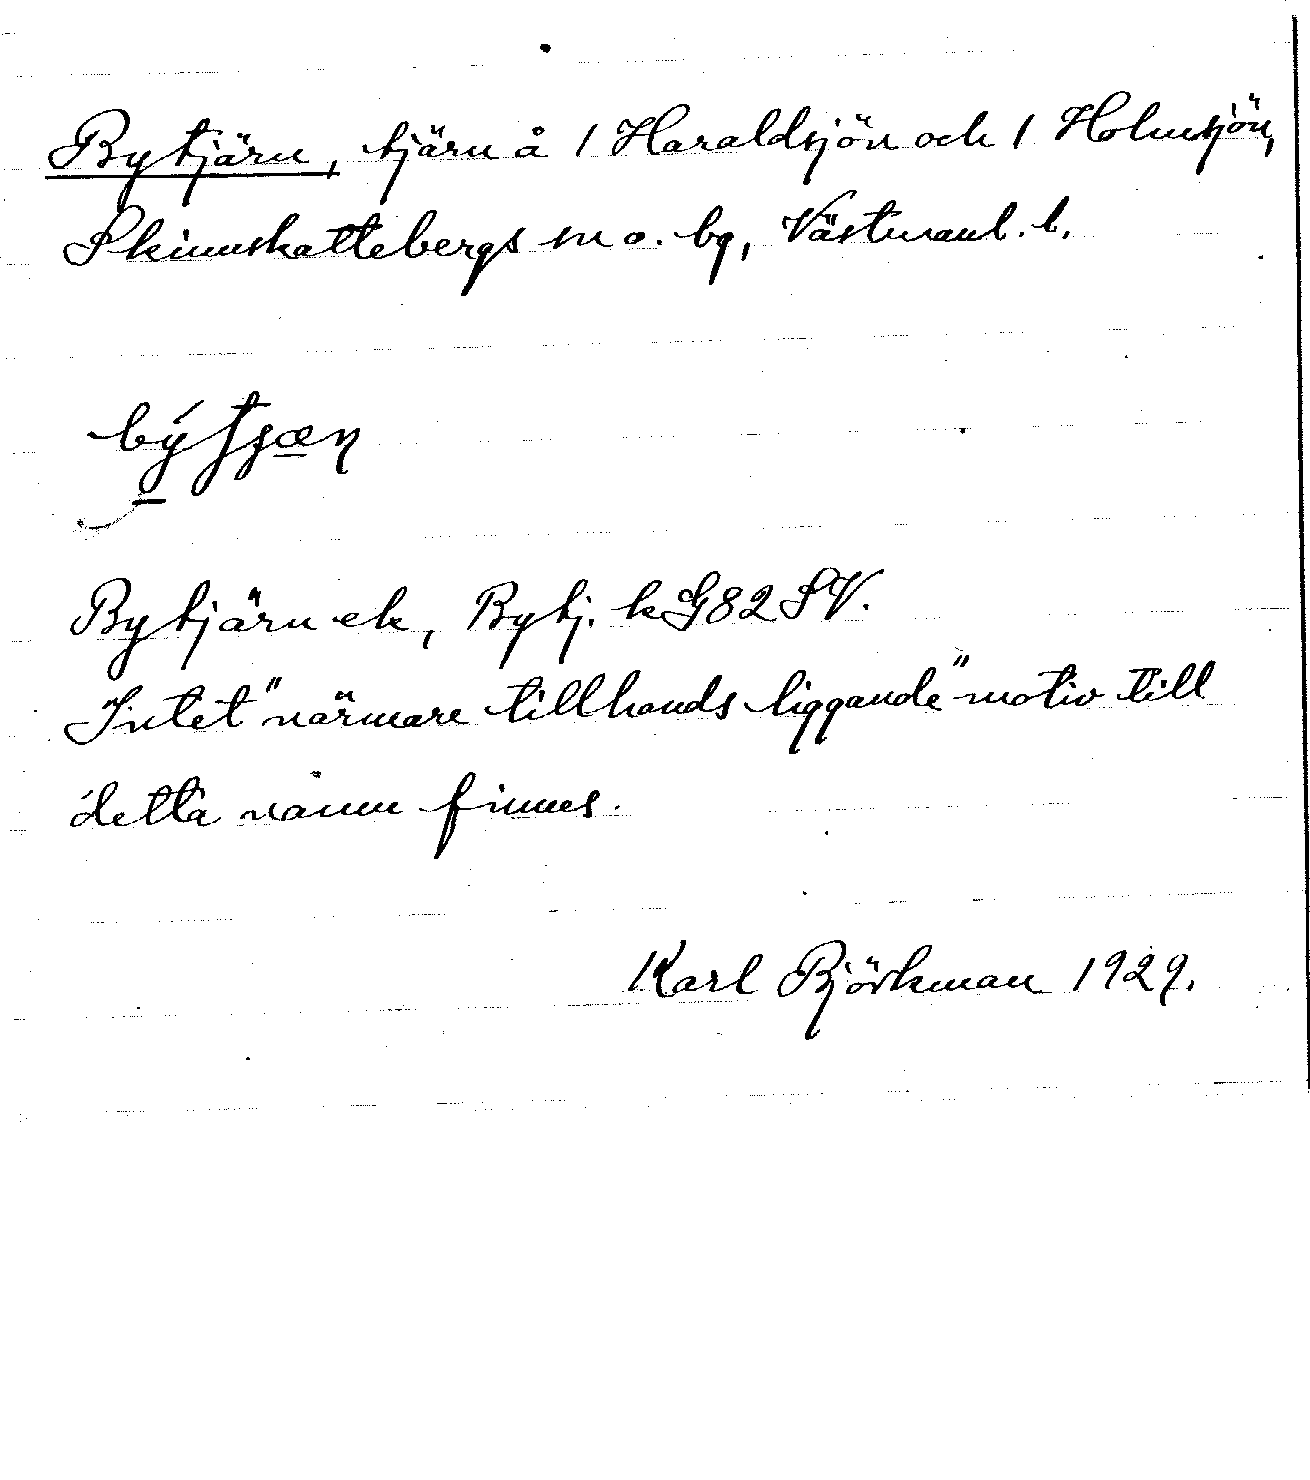 Bytjärn, tjärn å 1 Haraldsjön och 1 Holmsjön,
Skinnskattebergs sn o. bg, Västmanl. l.
Bytjärn ek, Bytj. k G82 SV.
Intet "närmare tillhands liggande" motiv till
detta namn finnes.
Karl Björkman 1929.